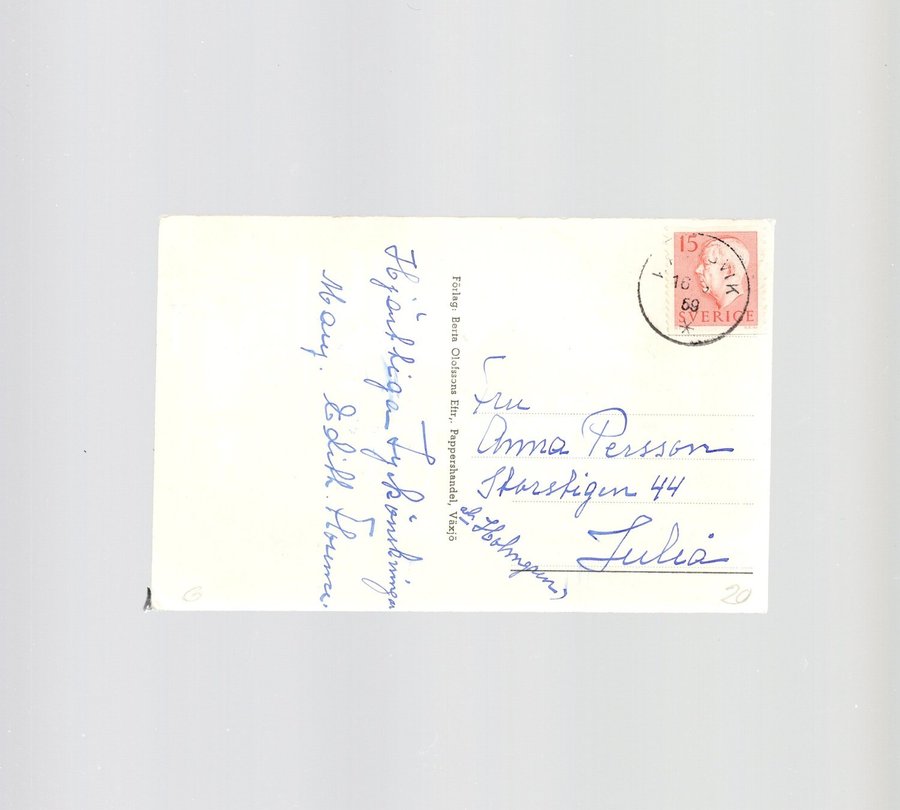 Hjärtliga Lyckönskningar
Mary. Edith.
Förlag: Berta Olofssons Eftr., Pappershandel, Växjö
15
SVERIGE
59
Fru
Anna Persson
Storstigen 44
Holmgren
Luleå
6
20